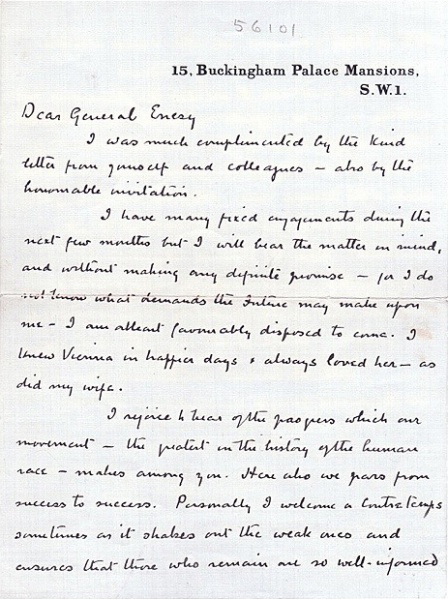 56101
15, Buckingham Palace Mansions,
S.W.1.
Dear General
I was much complimented by the kind
letter from yourself and colleagues – also by the
honourable invitation.
I have many fixed engagements during the
next few months but I will bear the matter in mind,
and without making any definite promise – for I do
not know what demands the future may make upon
me – I am atleast favourably disposed to come. I
knew Vienna in happier days & always loved her – as
did my wife.
I rejoice to hear of the progress which our
movement – the greatest in the history of the human
race – makes among you. Here also we pass from
success to success. Personally I welcome a Contretemps
sometimes as it shakes out the weak ones and
ensures that those who remain are so well-informed